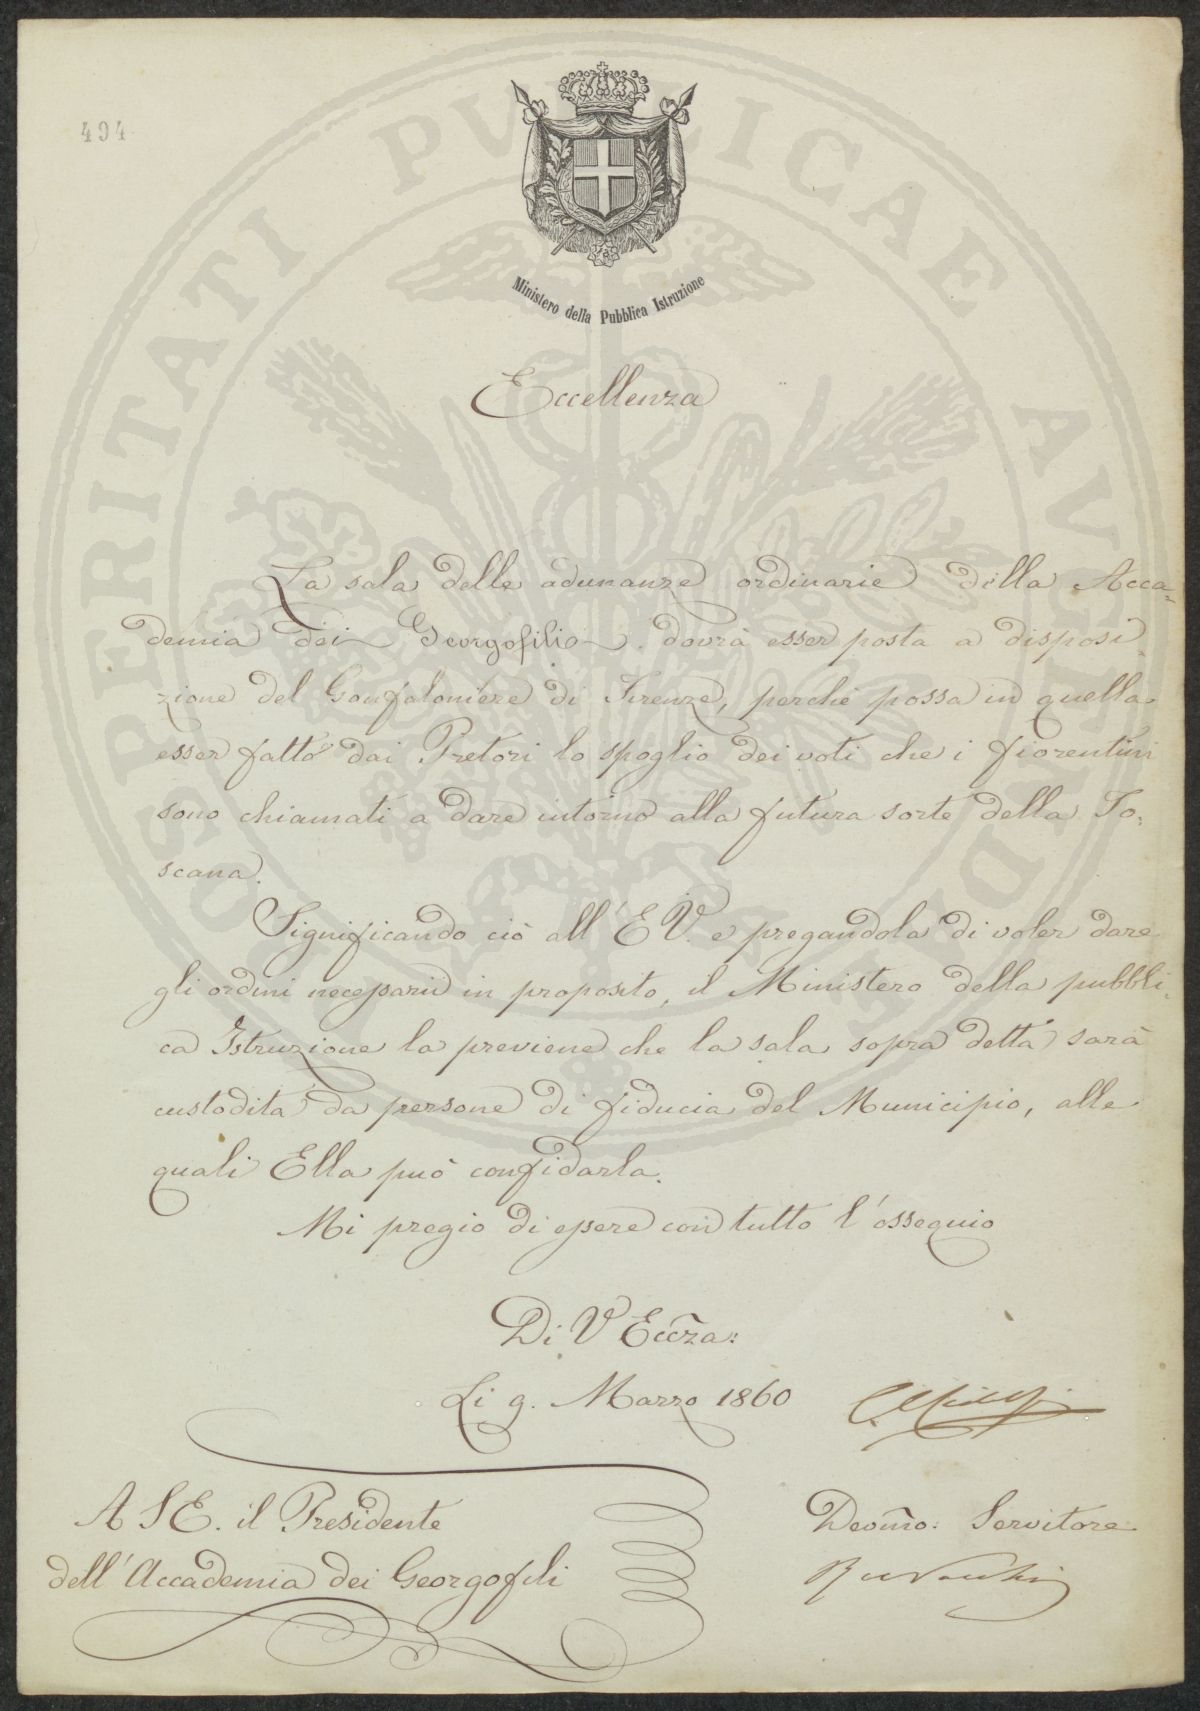 494
Ministero della Pubblica Istruzione
PROSPERITATI PVBLICAE AVGENDAE
Eccellenza
La sala delle adunanze ordinarie della Acca-
demia dei Georgofili dovrà esser posta a disposi-
zione del Gonfaloniere di Firenze, perché possa in quella
esser fatto dai Pretori lo spoglio dei voti che i fiorentini
sono chiamati a dare intorno alla futura sorte della To-
scana.
Significando ciò all'E V. e pregandola di voler dare
gli ordini necessarii in proposito, il Ministero della pubbli-
ca Istruzione la previene che la sala sopra detta sarà
custodita da persone di fiducia del Municipio, alle
quali Ella può confidarla.
Mi pregio di essere con tutto l'ossequio
Di V Eccza:
Li 9. Marzo 1860
A S E. il Presidente
dell'Accademia dei Georgofili
Devmo: Servitore